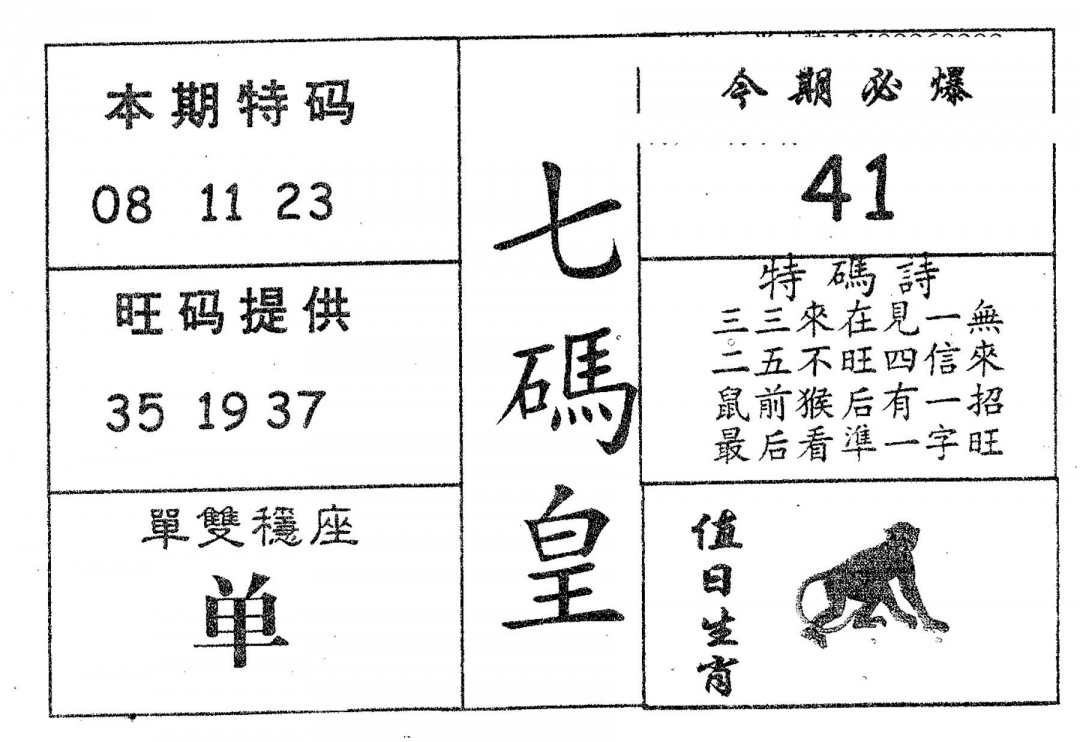 本期特码
08 11 23
旺码提供
35 19 37
單雙穩座
单
七碼皇
今期必爆
41
特碼詩
三三來在見一無
二五不旺四信來
鼠前猴后有一招
最后看準一字旺
值日生肖